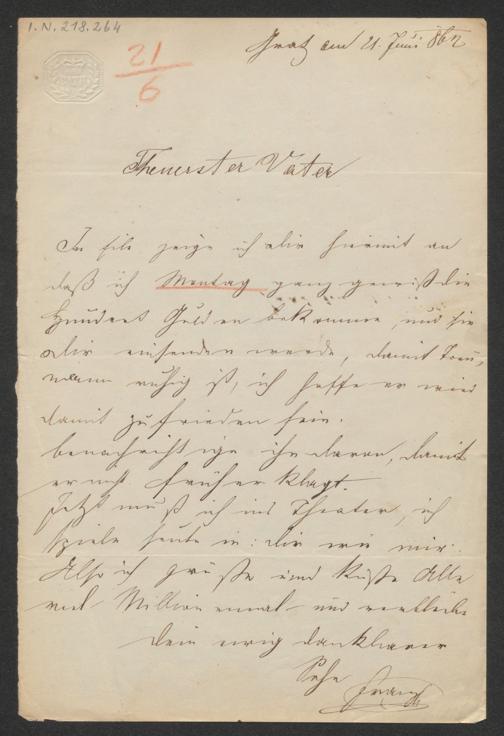 I.N. 218.264
21/6
Graz am 21. Juni 862
Theuerster Vater
In Eile zeige ich dir hiermit an
daß ich Montag ganz gewiß die
Hundert Gulden bekomme, und sie
dir einsenden werde, damit
mann ruhig ist, ich hoffe er wird
damit zufrieden sein.
benachrichtige ihn davon, damit
er nicht früher klagt.
Jetzt muß ich ins Theater, ich
spiele heute in: dir wie mir.
Also ich grüße und küße Alle
viel Millionenmal und verbleibe
dein ewig dankbarer
Sohn Franz